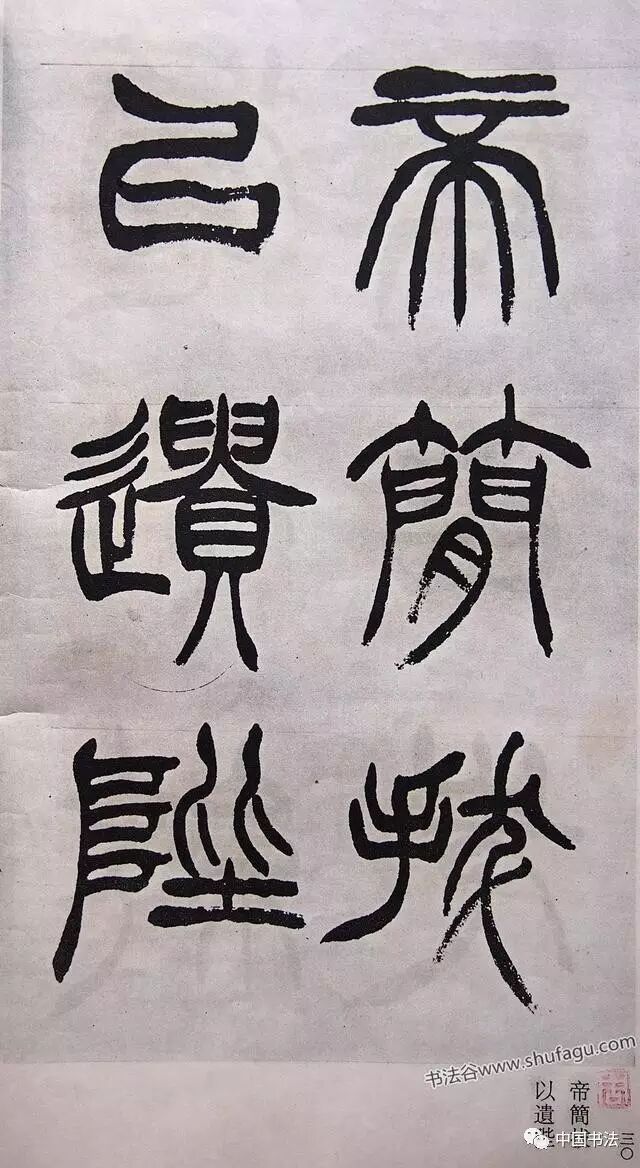 帝簡拔
以遺陛
书法谷www.shufagu.com
帝簡
以遺陛
三〇
中国书法